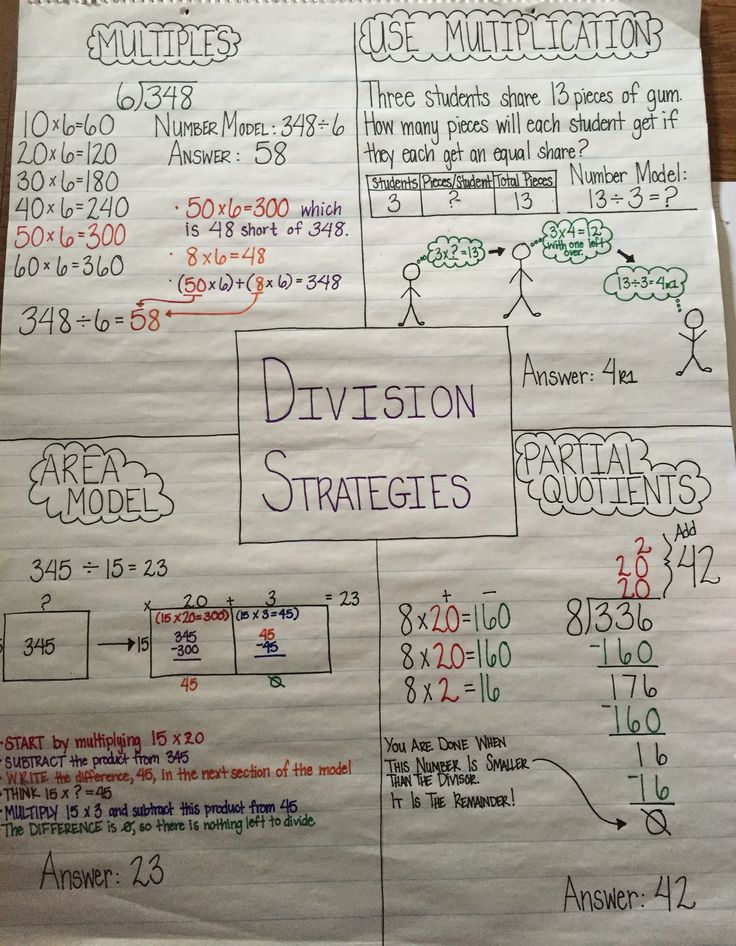 MULTIPLES
6)348
10×6=60
20×6=120
30×6=180
40×6=240
50×6=300
60×6=360
NUMBER MODEL: 348÷6
ANSWER: 58
· 50×6=300 which
is 48 short of 348.
· 8×6=48
· (50×6)+(8×6)=348
348÷6=58
USE MULTIPLICATION
Three students share 13 pieces of gum.
How many pieces will each student get if
they each get an equal share?
Students Pieces/Student Total Pieces
3 ? 13
Number Model:
13÷3=?
3×?=13
3×4=12
with one left
over.
13÷3=4R1
Answer: 4R1
DIVISION
STRATEGIES
AREA
MODEL
345 ÷ 15 = 23
?
345
× 20 + 3 = 23
15
(15×20=300) (15×3=45)
345
-300
45
45
-45
0
·START by multiplying 15×20
·SUBTRACT the product from 345
·WRITE the difference, 45, in the next section of the model
·THINK 15×?=45
·MULTIPLY 15×3 and subtract this product from 45
The DIFFERENCE is 0, so there is nothing left to divide
Answer: 23
PARTIAL
QUOTIENTS
+ -
8×20=160
8×20=160
8×2=16
2
20
20
Add
42
8)336
-160
176
-160
16
-16
0
YOU ARE DONE WHEN
THIS NUMBER IS SMALLER
THAN THE DIVISOR.
IT IS THE REMAINDER!
Answer: 42